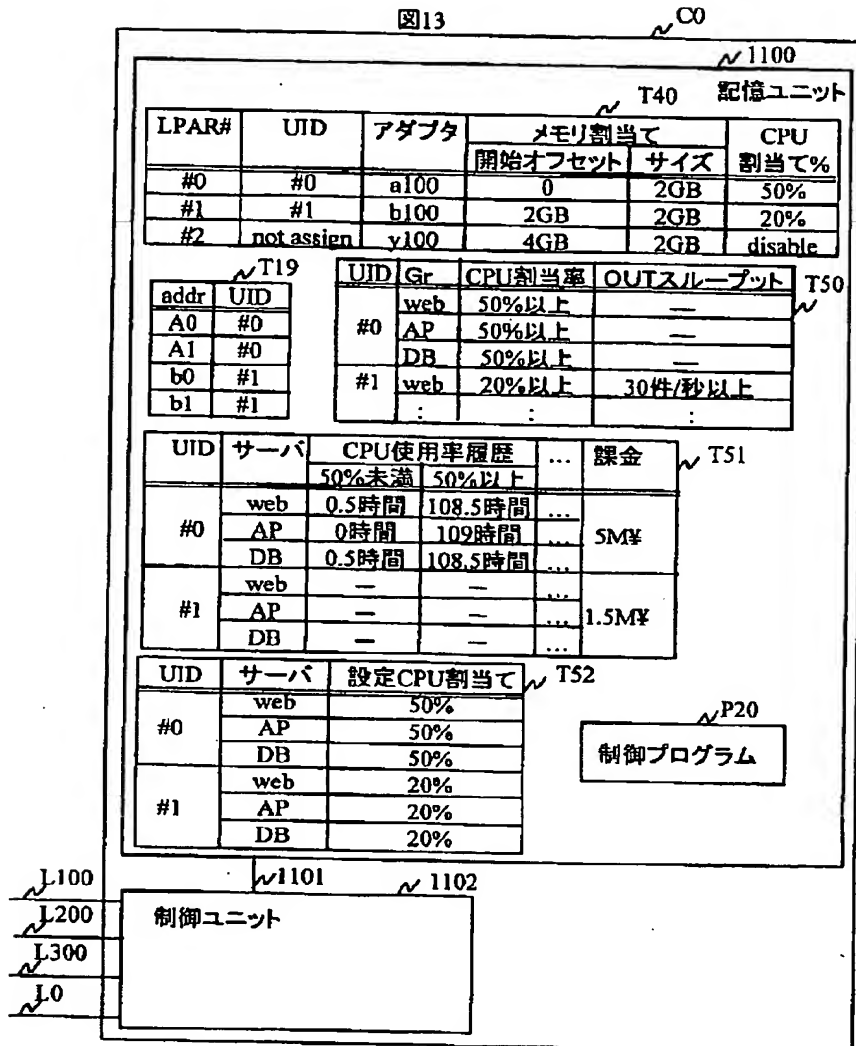 図13
C0
1100
記憶ユニット
T40
LPAR# UID アダプタ メモリ割当て CPU
開始オフセット サイズ 割当て%
#0 #0 a100 0 2GB 50%
#1 #1 b100 2GB 2GB 20%
#2 not assign y100 4GB 2GB disable
T19
addr UID
A0 #0
A1 #0
b0 #1
b1 #1
T50
UID Gr CPU割当率 OUTスループット
web 50%以上 —
#0 AP 50%以上 —
DB 50%以上 —
#1 web 20%以上 30件/秒以上
: : :
T51
UID サーバ CPU使用率履歴 … 課金
50%未満 50%以上
web 0.5時間 108.5時間 …
#0 AP 0時間 109時間 … 5M¥
DB 0.5時間 108.5時間 …
web — — …
#1 AP — — … 1.5M¥
DB — — …
T52
UID サーバ 設定CPU割当て
web 50%
#0 AP 50%
DB 50%
web 20%
#1 AP 20%
DB 20%
P20
制御プログラム
1101
1102
L100
L200
L300
L0
制御ユニット